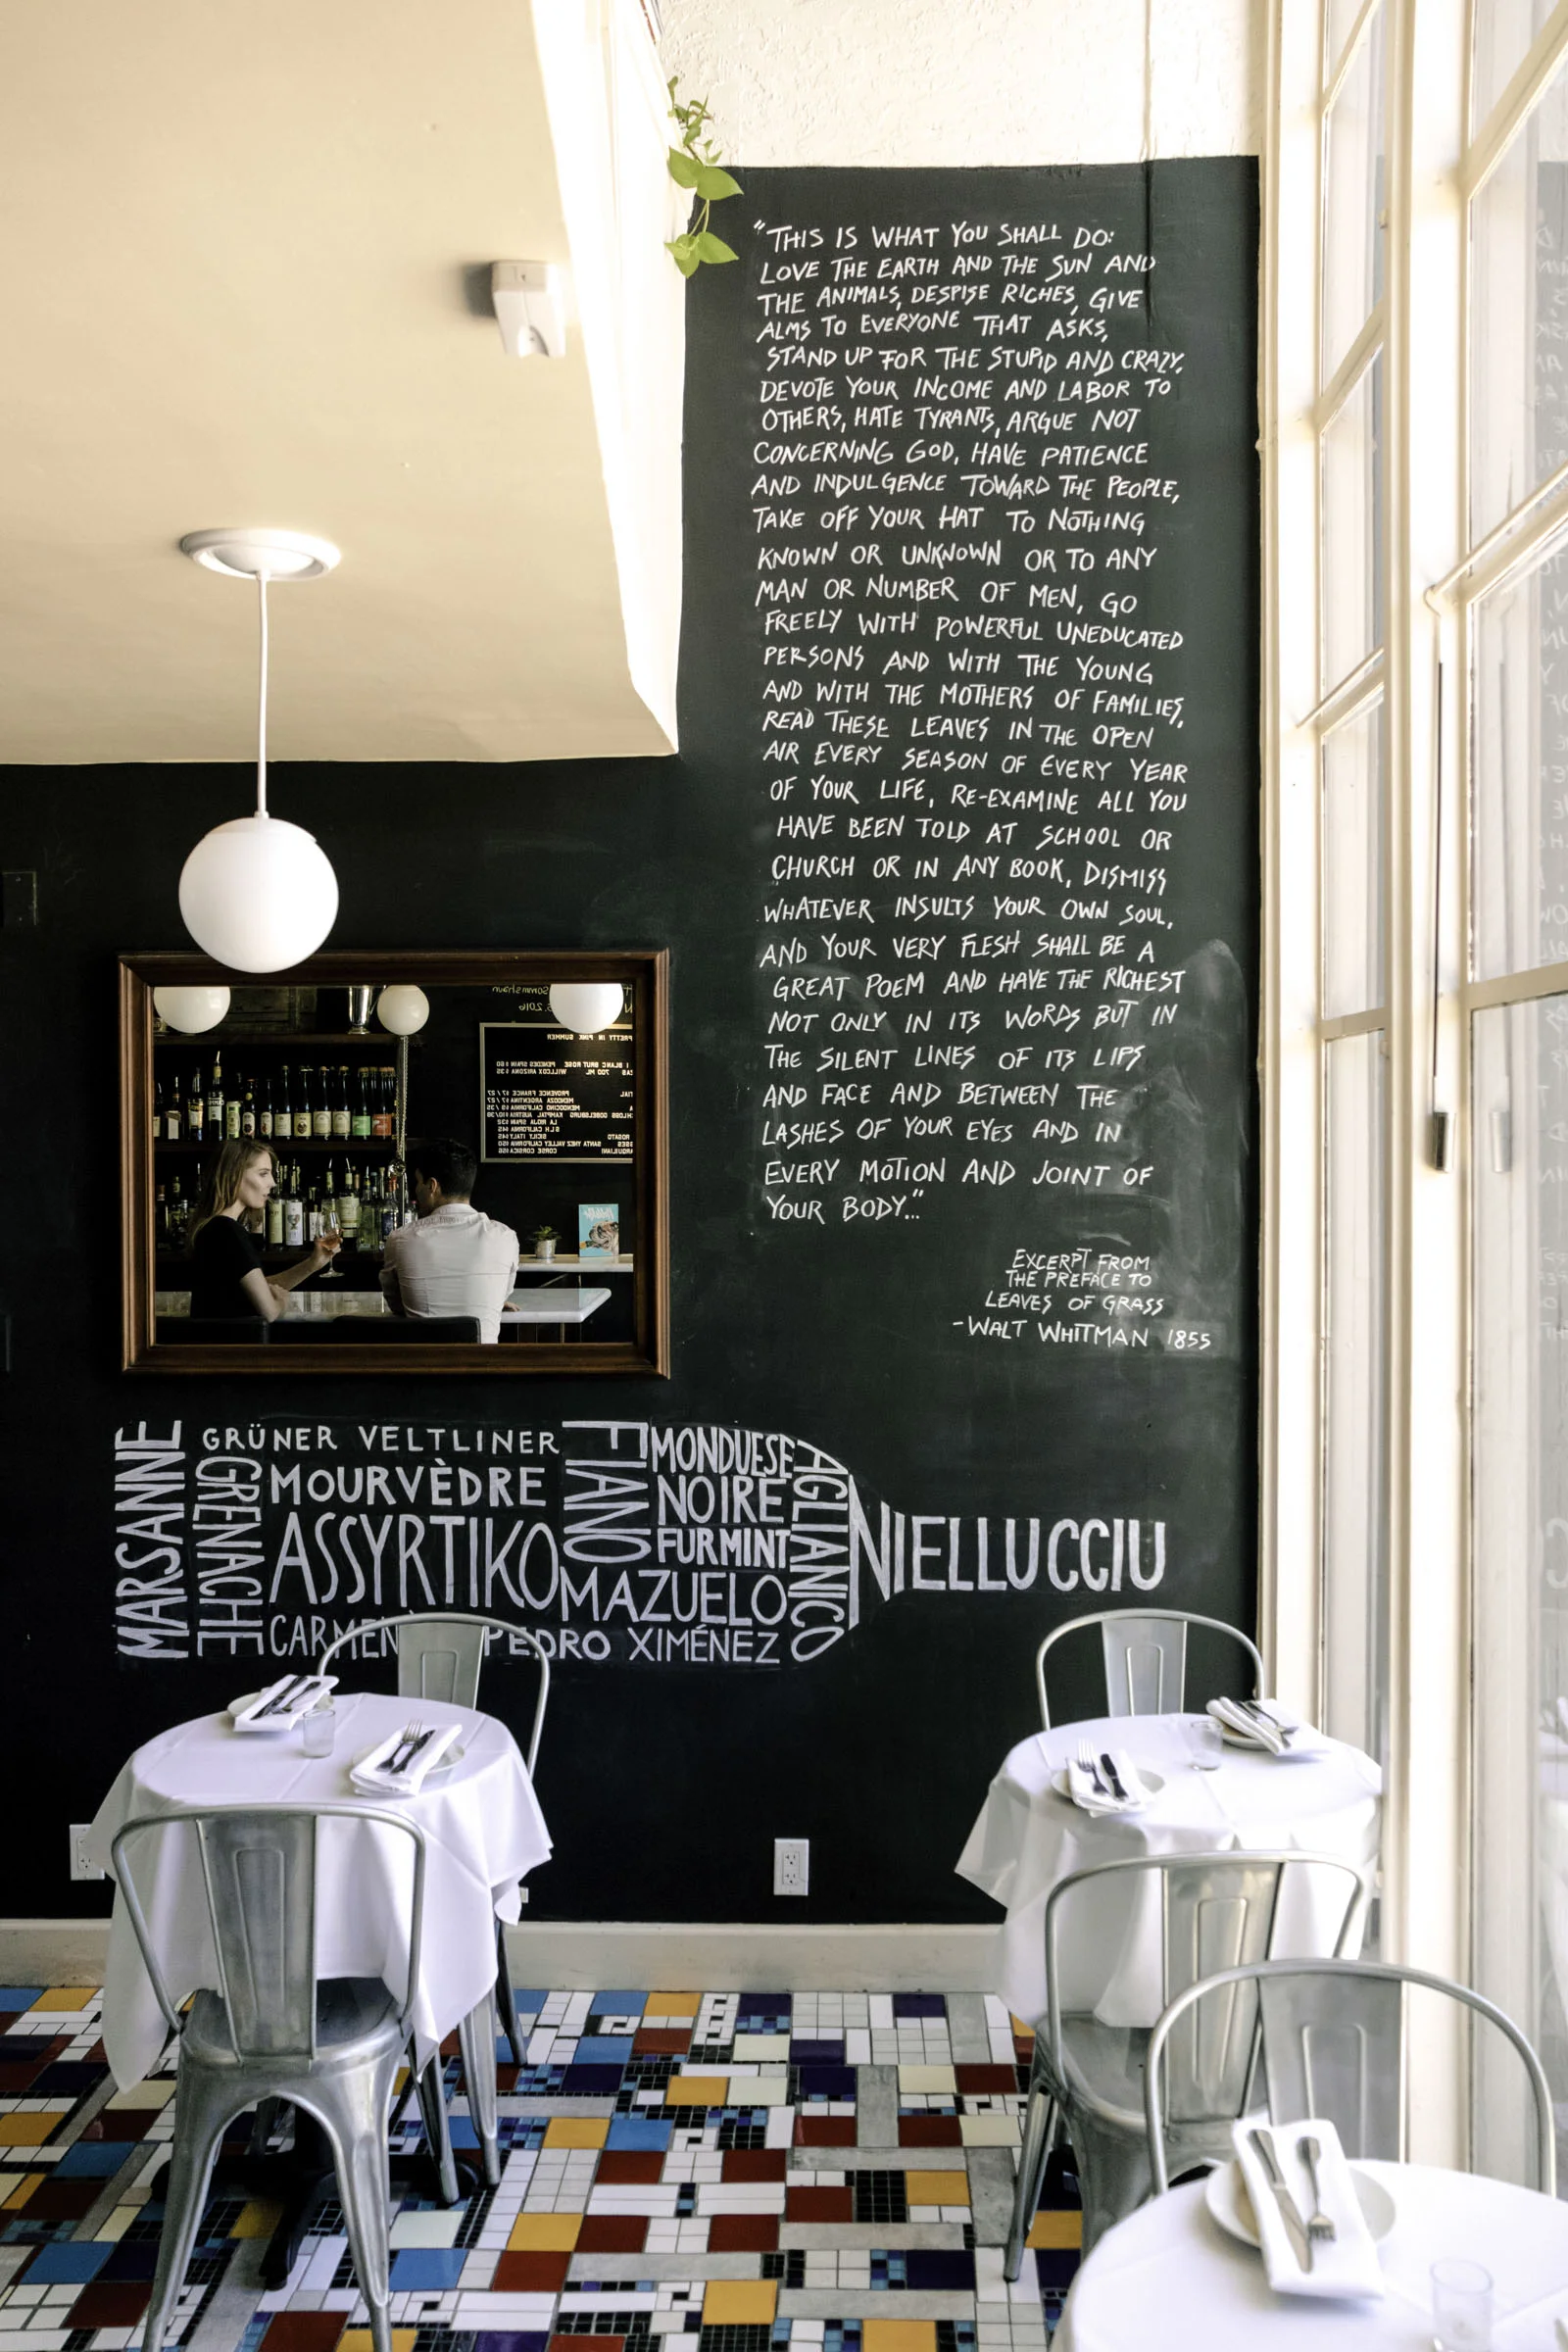 "THIS IS WHAT YOU SHALL DO:
LOVE THE EARTH AND THE SUN AND
THE ANIMALS, DESPISE RICHES, GIVE
ALMS TO EVERYONE THAT ASKS,
STAND UP FOR THE STUPID AND CRAZY,
DEVOTE YOUR INCOME AND LABOR TO
OTHERS, HATE TYRANTS, ARGUE NOT
CONCERNING GOD, HAVE PATIENCE
AND INDULGENCE TOWARD THE PEOPLE,
TAKE OFF YOUR HAT TO NOTHING
KNOWN OR UNKNOWN OR TO ANY
MAN OR NUMBER OF MEN, GO
FREELY WITH POWERFUL UNEDUCATED
PERSONS AND WITH THE YOUNG
AND WITH THE MOTHERS OF FAMILIES,
READ THESE LEAVES IN THE OPEN
AIR EVERY SEASON OF EVERY YEAR
OF YOUR LIFE, RE-EXAMINE ALL YOU
HAVE BEEN TOLD AT SCHOOL OR
CHURCH OR IN ANY BOOK, DISMISS
WHATEVER INSULTS YOUR OWN SOUL,
AND YOUR VERY FLESH SHALL BE A
GREAT POEM AND HAVE THE RICHEST
NOT ONLY IN ITS WORDS BUT IN
THE SILENT LINES OF ITS LIPS
AND FACE AND BETWEEN THE
LASHES OF YOUR EYES AND IN
EVERY MOTION AND JOINT OF
YOUR BODY..."
EXCERPT FROM
THE PREFACE TO
LEAVES OF GRASS
-WALT WHITMAN 1855
PRETTY IN PINK SUMMER
MARSANNE
GRÜNER VELTLINER
GRENACHE
MOURVÈDRE
ASSYRTIKO
CARMEN
FIANO
MONDUESE
NOIRE
FURMINT
MAZUELO
PEDRO XIMÉNEZ
AGLIANICO
NIELLUCCIU